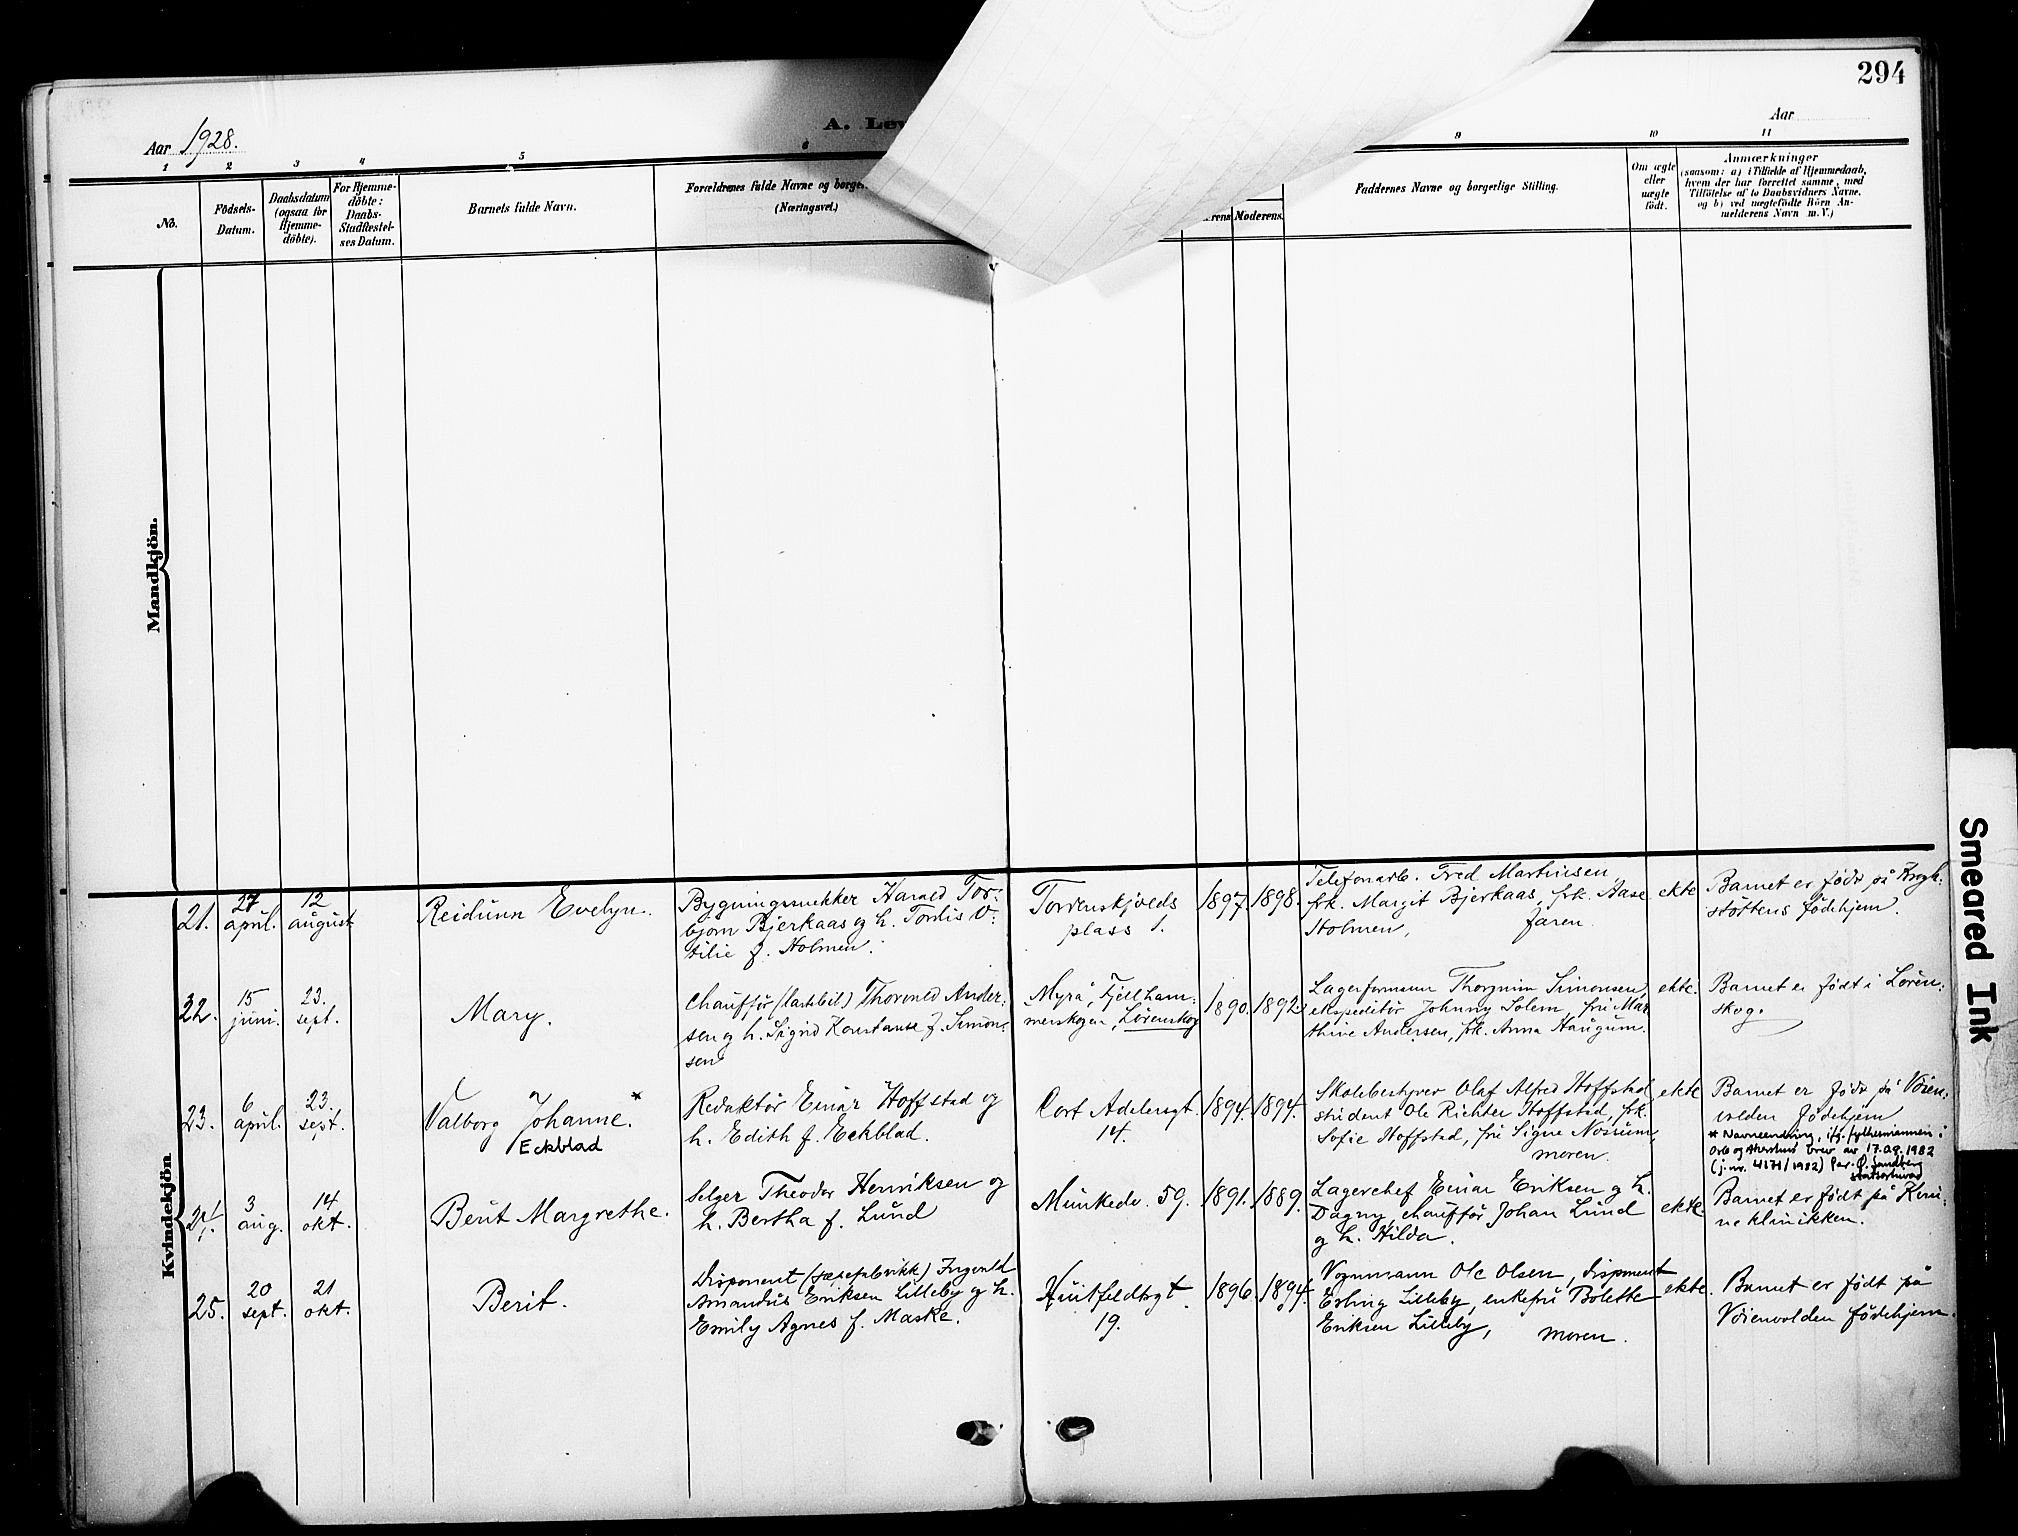 294
A. Lev
Aar 1928.
Aar
1 2 3 4 5 6 9 10 11
No.
Födsels-
Datum.
Daabsdatum
(ogsaa for
Hjemme-
döbte).
For Hjemme-
döbte:
Daabs-
Stadfæstel-
ses Datum.
Barnets fulde Navn.
Forældrenes fulde Navne og borger
(Næringsvei.)
erens Moderens.
Faddernes Navne og borgerlige Stilling.
Om ægte
eller
uægte
födt.
Anmærkninger
(saasom: a) i Tilfælde af Hjemmedaab,
hvem der har forrettet samme, med
Tilföielse af to Daabsvidners Navne.
og b) ved uægtefödte Börn An-
melderens Navn m. V.)
Mandkjön.
Kvindekjön
21.
27
april.
12
august
Reidunn Evelyn.
Bygningssnekker Harald Tor-
bjørn Bjerkaas og h. Tordis O-
tilie f. Holmen.
Tordenskjolds
plass 1.
1897. 1898.
Telefonarb. Fred Marthinsen,
frk. Margit Bjerkaas, frk. Aase
Holmen, faren
ekte
Barnet er født på Krogh-
støttens fødehjem.
22.
15
juni.
23.
sept.
Mary.
Chauffør (lastebil) Thorvald Ander-
sen og h. Sigrid Konstanse f. Simon-
sen
Myra, Fjellham-
merskogen, Lørenskog
1890. 1892.
Lagerformann Thorgrim Simonsen
ekspeditør Johnny Solem, fru Mar
thine Andersen, frk. Anna Haugum.
ekte.
Barnet er født i Løren-
skog.
23.
6
april.
23.
sept.
Valborg Johanne.*
Eckblad
Redaktør Einar Hoffstad og
h. Edith f. Eckblad.
Cort Adelersgt.
14.
1894. 1894.
Skolebestyrer Olaf Alfred Hoffstad
student Ole Richter Hoffstad, frk.
Sofie Hoffstad, fru Signe Nosrum,
moren.
ekte
Barnet er født på Vøien-
volden fødehjem
* Navneendring, ifg. fylkesmannen i
Oslo og Akershus brev av 17.09.1982
(j.nr. 4171/1982) Per-Ø. Sandberg
statsarkivar
24.
3
aug.
14
okt.
Berit Margrethe.
Selger Theodor Henriksen og
h. Bertha f. Lund
Munkedv. 59.
1891. 1889.
Lagerchef Einar Eriksen og h.
Dagny, chauffør Johan Lund
og h. Hilda.
ekte
Barnet er født på Kvin-
neklinikken.
25.
20
sept.
21
okt.
Berit.
Disponent (sæpefabrikk) Ingvald
Amandus Eriksen Lilleby og h.
Emily Agnes f. Maske.
Huitfeldtsgt.
19.
1896. 1894.
Vognmann Ole Olsen, disponent
Erling Lilleby, enkefru Bolette
Eriksen Lilleby, moren.
ekte.
Barnet er født på
Vøienvolden fødehjem.
Smeared Ink